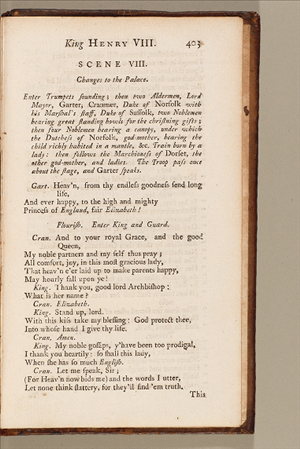 King HENRY VIII. 403
SCENE VIII.
Changes to the Palace.
Enter Trumpets sounding; then two Aldermen, Lord
Mayor, Garter, Cranmer, Duke of Norfolk with
his Marshal's staff, Duke of Suffolk, two Noblemen
bearing great standing bowls for the christning gifts;
then four Noblemen bearing a canopy, under which
the Dutchess of Norfolk, god-mother, bearing the
child richly habited in a mantle, &c. Train born by a
lady: then follows the Marchioness of Dorset, the
other god-mother, and ladies. The Troop pass once
about the stage, and Garter speaks.
Gart. Heav'n, from thy endless goodness send long
life,
And ever happy, to the high and mighty
Princess of England, fair Elizabeth!
Flourish. Enter King and Guard.
Cran. And to your royal Grace, and the good
Queen,
My noble partners and my self thus pray;
All comfort, joy, in this most gracious lady,
That heav'n e'er laid up to make parents happy,
May hourly fall upon ye!
King. Thank you, good lord Archbishop:
What is her name?
Cran. Elizabeth.
King. Stand up, lord.
With this kiss take my blessing: God protect thee,
Into whose hand I give thy life.
Cran. Amen.
King. My noble gossips, y'have been too prodigal,
I thank you heartily: so shall this lady,
When she has so much English.
Cran. Let me speak, Sir;
(For Heav'n now bids me) and the words I utter,
Let none think flattery, for they'll find 'em truth.
This